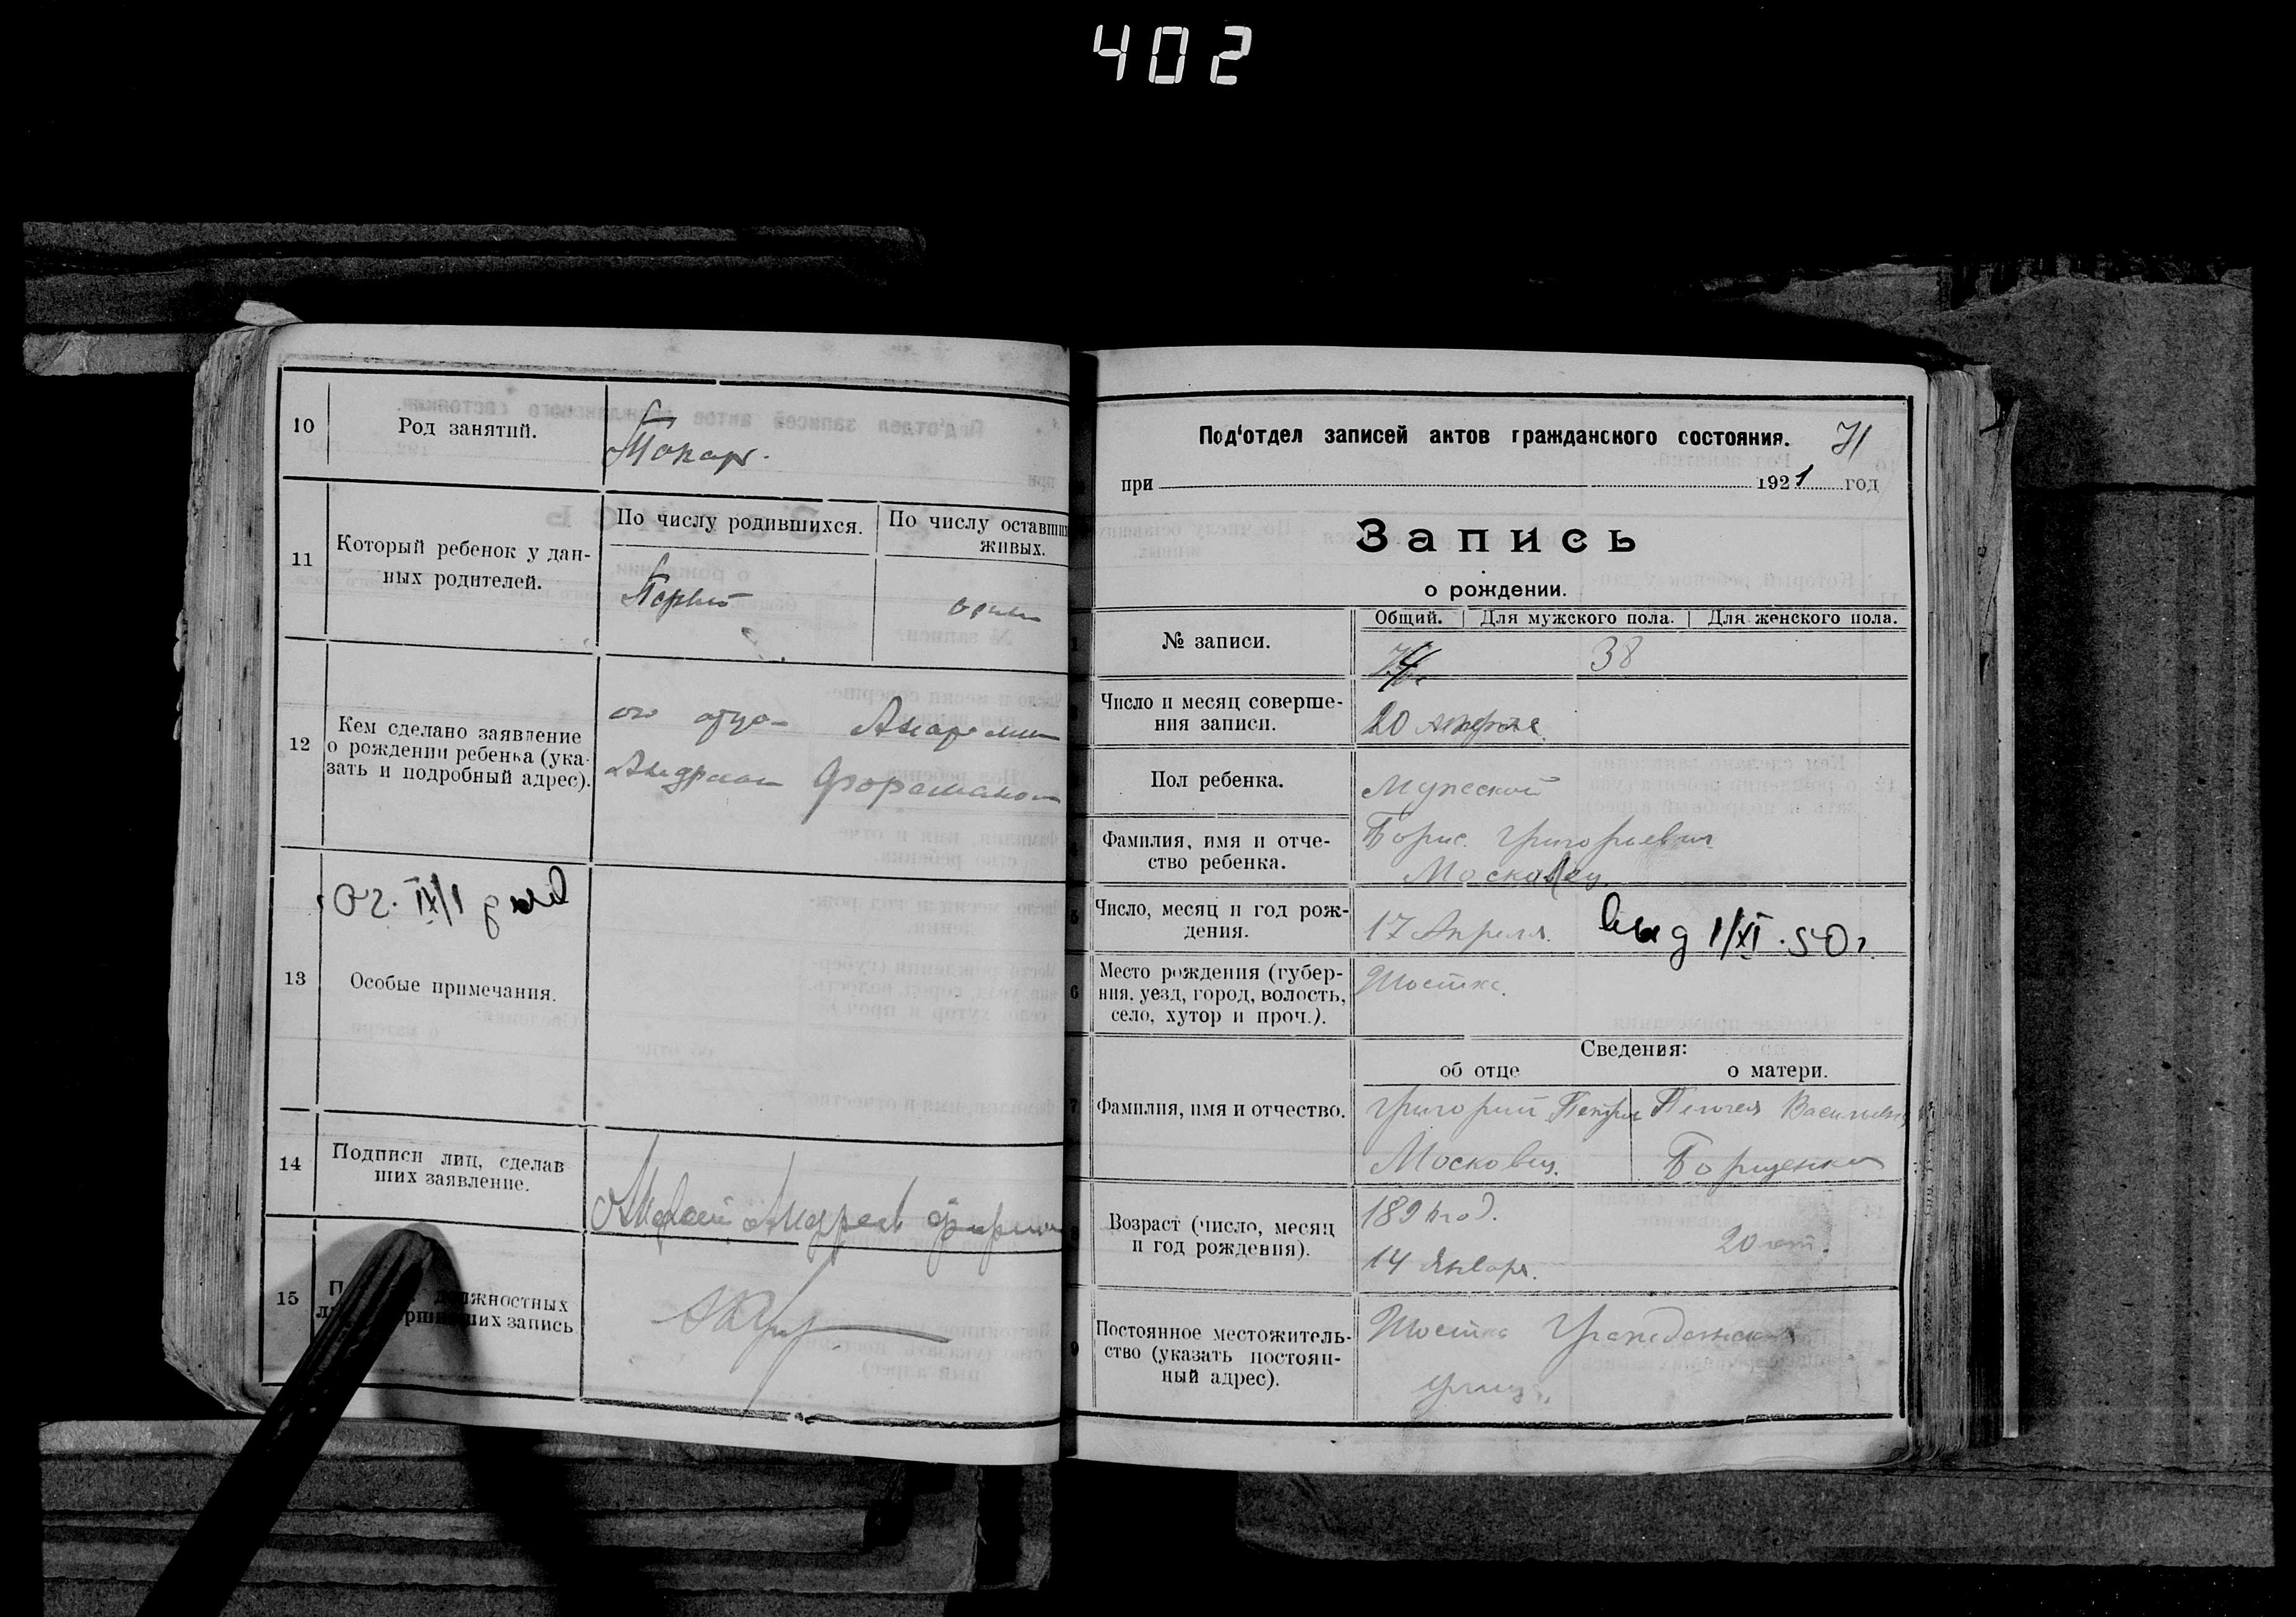 402
10
Род занятий.
Токар.
11
Который ребенок у дан-
ных родителей.
По числу родившихся.
По числу оставших
живых.
Первый
один
12
Кем сделано заявление
о рождении ребенка (ука-
зать и подробный адрес).
отца
13
Особые примечания.
14
Подписи лиц, сделав
ших заявление.
Андрей
15
должностных
ших запись
Под'отдел записей актов гражданского состояния.
71
при 1921 год
Запись
о рождении.
1
№ записи.
Общий.
Для мужского пола.
Для женского пола.
38
Число и месяц соверше-
ния записи.
20 Апреля
Пол ребенка.
Мужеской
Фамилия, имя и отче-
ство ребенка.
Борис Григорьевич
Московец
5
Число, месяц и год рож-
дения.
17 Апреля.
выд 1/XI.50г.
6
Место рождения (губер-
ния, уезд, город, волость,
село, хутор и проч.).
Шостка.
Сведения:
об отце
о матери.
7
Фамилия, имя и отчество.
Григорий Петров
Московец.
Пелагея Васильевн
Борщенко
8
Возраст (число, месяц
и год рождения).
год.
14 Января.
20 лет.
9
Постоянное местожитель-
ство (указать постоян-
ный адрес).
Шостка
улиц